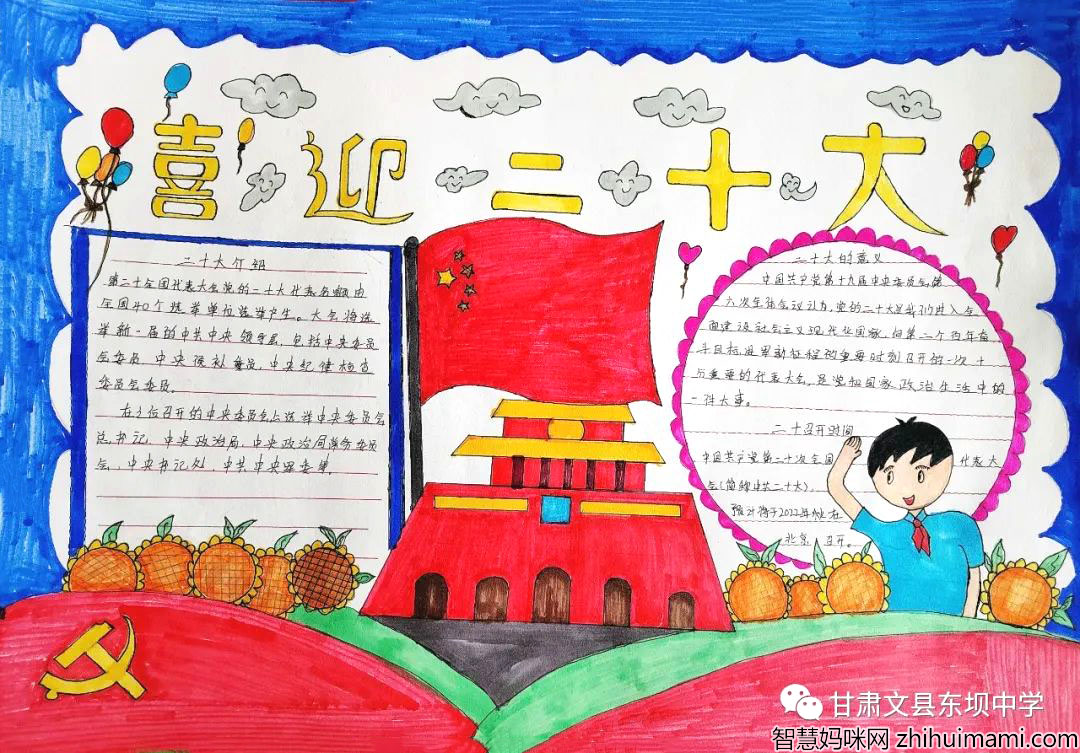 喜迎二十大
二十大介绍
第二十全国代表大会党的二十大代表名额由
全国40个选举单位选举产生。大会将选
举新一届的中共中央领导层，包括中央委员
会委员、中央候补委员、中央纪律检查
委员会委员。
在之后召开的中央委员会上选举中央委员会
总书记，中央政治局，中央政治局常务委员
会，中央书记处，中共中央军委
二十大的意义
中国共产党第十九届中央委员会第
六次全体会议认为，党的二十大是我们进入全
面建设社会主义现代化国家，向第二个百年奋
斗目标进军新征程的重要时刻召开的一次十
分重要的代表大会，是党和国家政治生活中的
一件大事。
二十召开时间
中国共产党第二十次全国代表大
会（简称中共二十大），
预计将于2022年在
北京召开。
甘肃文县东坝中学
智慧妈咪网 zhihuimami.com